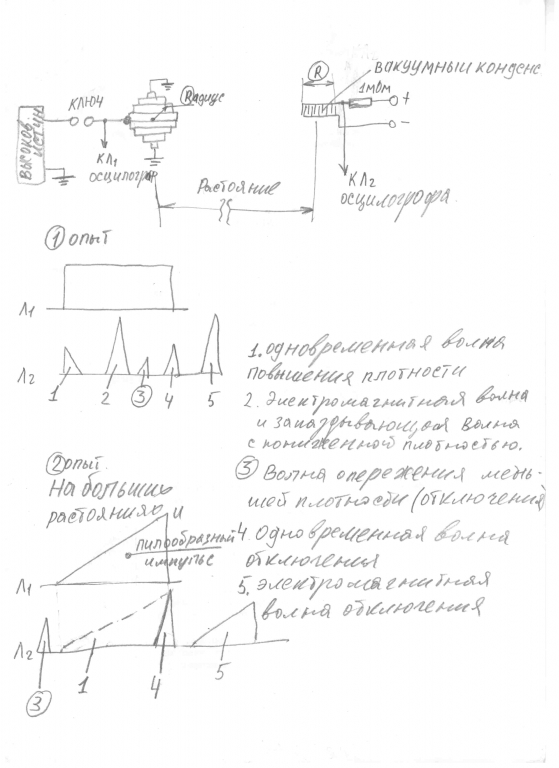 R
ВАКУУМНЫЙ КОНДЕНС
1мОм
+
−
КЛЮЧ
Rадиус
ВЫСОКОВ.
ИСТЧН
КЛ1
ОСЦИЛОГРАФ
КЛ2
ОСЦИЛОГРАФА
Растояние
1 опыт
Л1
Л2
1 2 3 4 5
1. одновременная волна
повышения плотности
2. Электромагнитная волна
и запаздывающая волна
с пониженной плотностью.
3 Волна опережения мень-
шей плотности (отключения)
4 Одновременная волна
отключения
5. электромагнитная
волна отключения
2 опыт.
На больших
растояниях
и
пилообразный
импульс
Л1
Л2
3 1 4 5